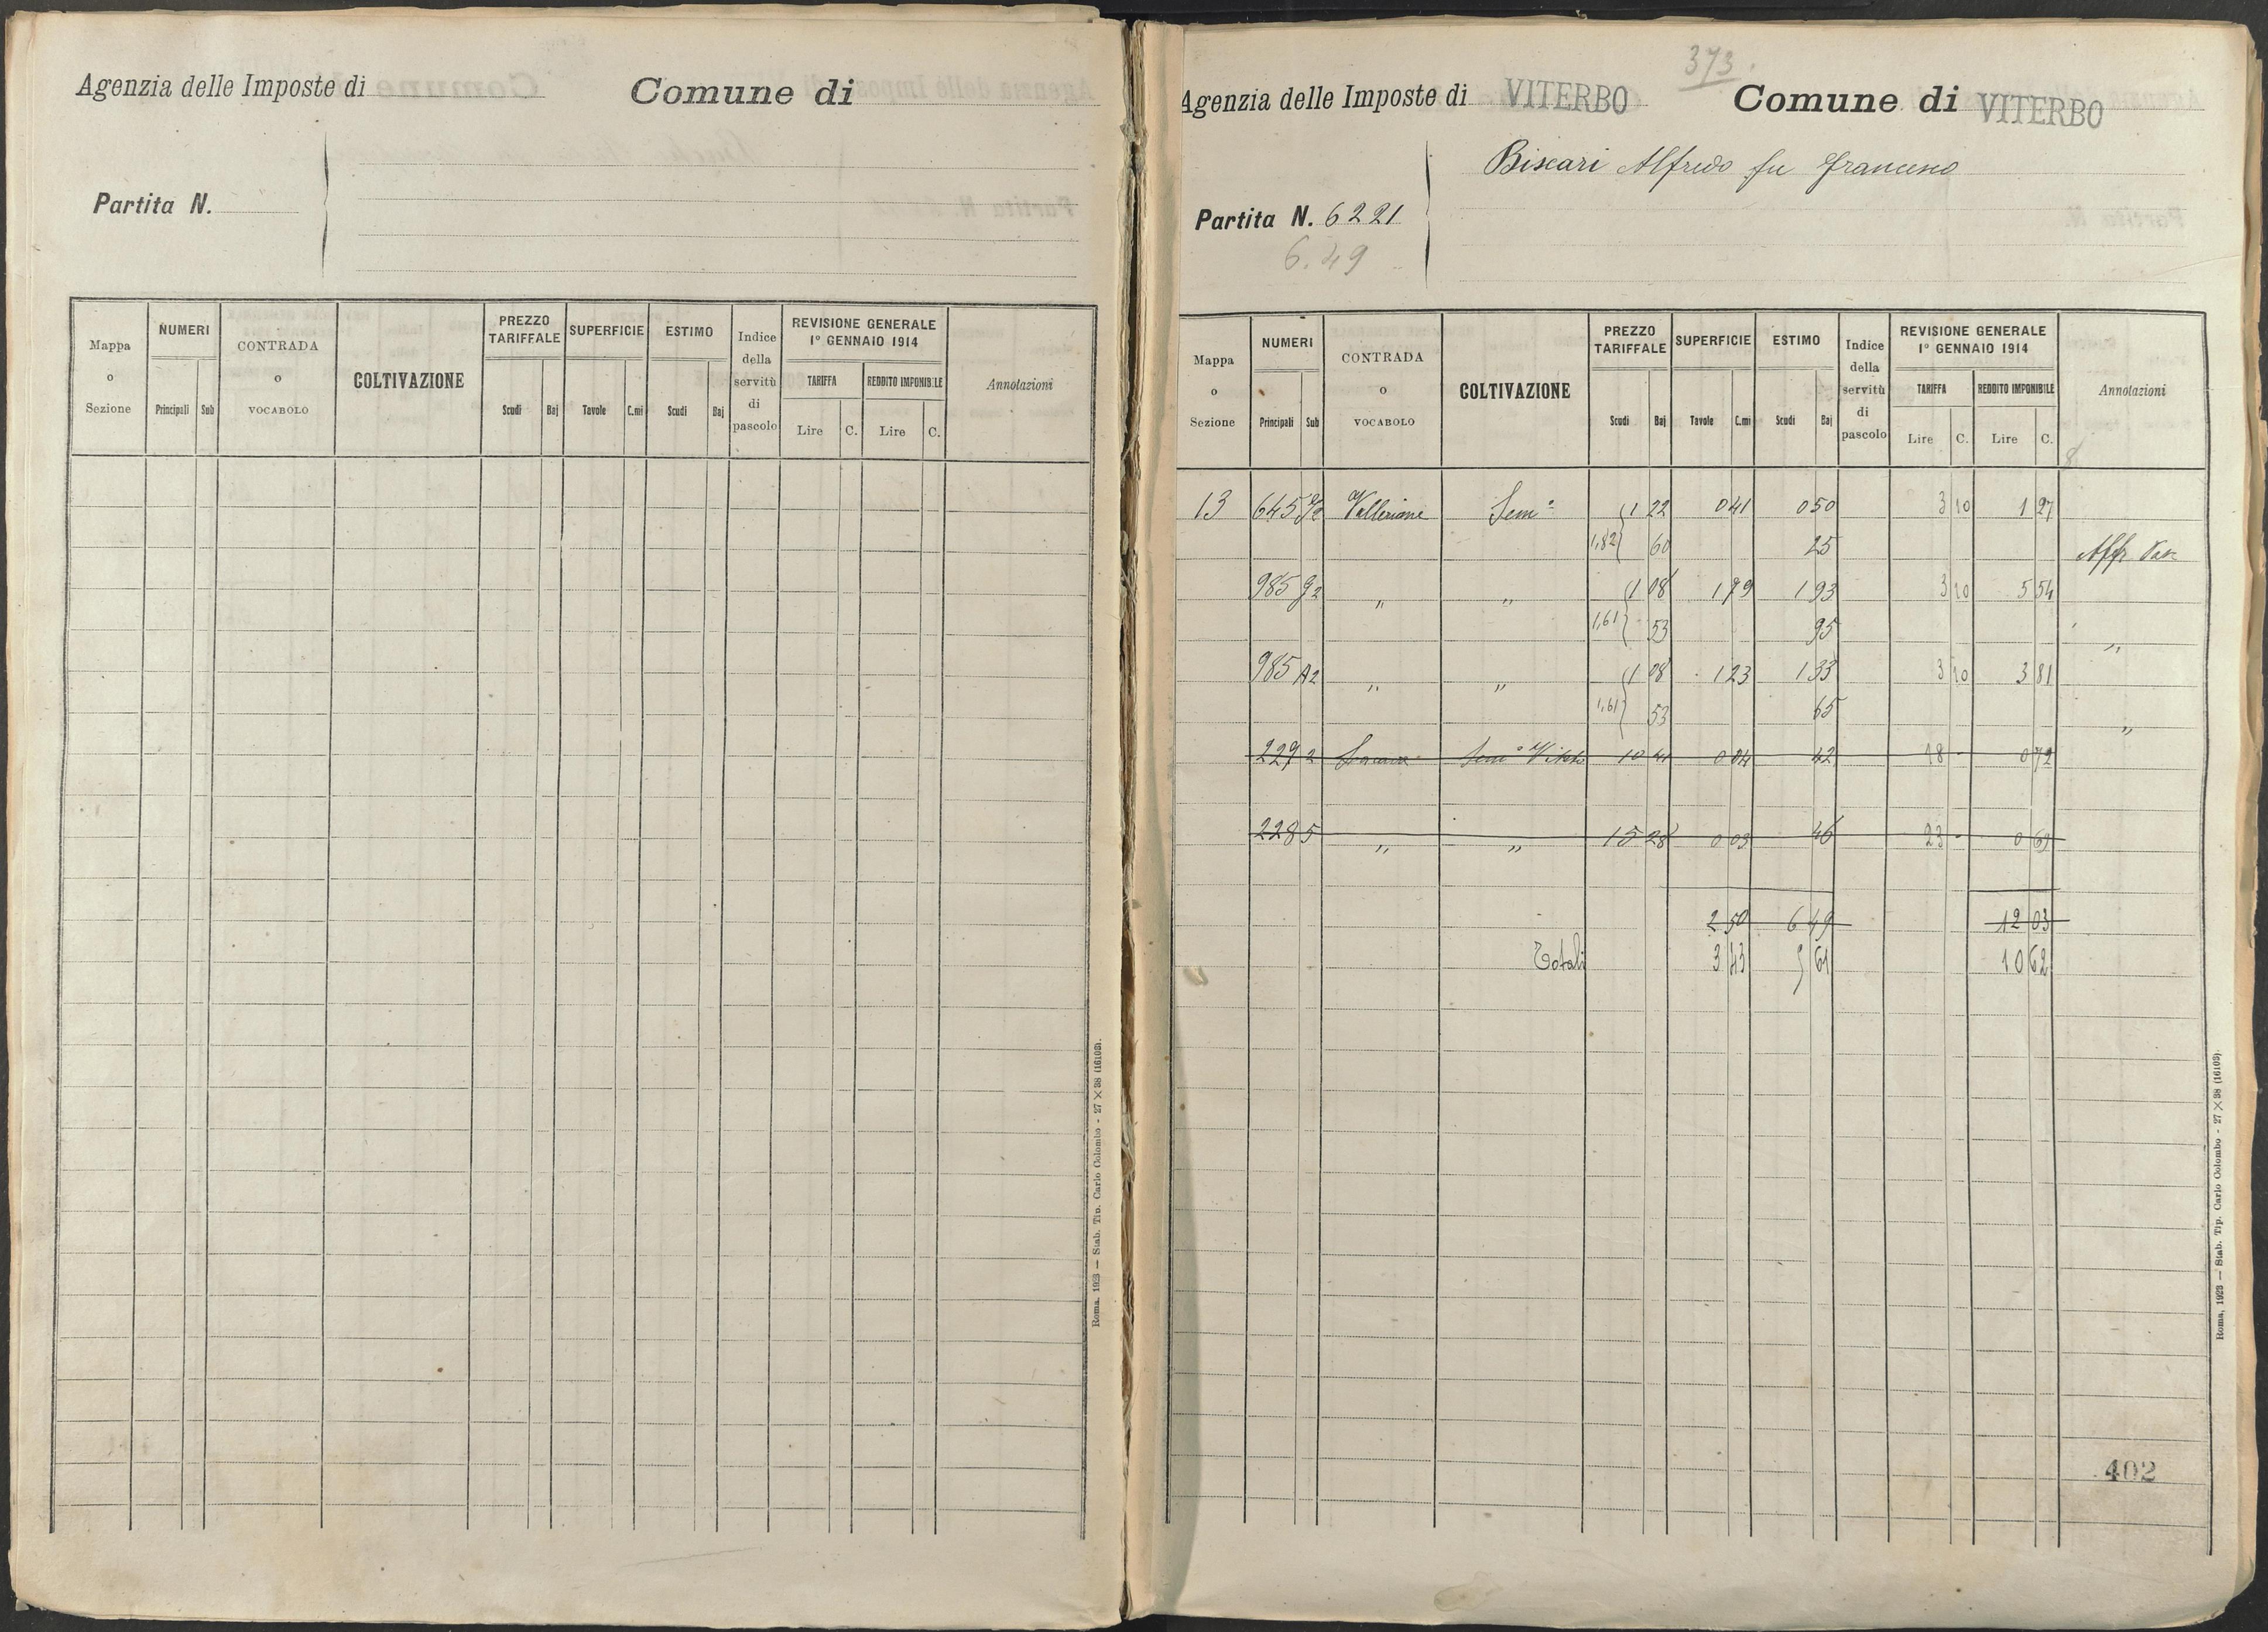 Agenzia delle Imposte di
Comune di
Partita N.
Mappa o Sezione
NUMERI
Principali Sub
CONTRADA o VOCABOLO
COLTIVAZIONE
PREZZO TARIFFALE
Scudi Baj
SUPERFICIE
Tavole C.mi
ESTIMO
Scudi Baj
Indice della servitù di pascolo
REVISIONE GENERALE 1º GENNAIO 1914
TARIFFA
Lire C.
REDDITO IMPONIBILE
Lire C.
Annotazioni
Roma, 1923 — Stab. Tip. Carlo Colombo - 27 X 38 (16103).
373
Agenzia delle Imposte di VITERBO
Comune di VITERBO
Biscari Alfredo fu Francesco
Partita N. 6221
6.49
Mappa o Sezione
NUMERI
Principali Sub
CONTRADA o VOCABOLO
COLTIVAZIONE
PREZZO TARIFFALE
Scudi Baj
SUPERFICIE
Tavole C.mi
ESTIMO
Scudi Baj
Indice della servitù di pascolo
REVISIONE GENERALE 1º GENNAIO 1914
TARIFFA
Lire C.
REDDITO IMPONIBILE
Lire C.
Annotazioni
13 645 Sem.º 1 22 0 41 0 50 3 10 1 27
1,82 60 25 Affr.
985 g2 " " 1 08 1 79 1 93 3 10 5 54
1,61 53 95 "
985 A2 " " 1 08 1 23 1 33 3 10 3 81
1,61 53 65 "
2272 Sem.º Vit. 10 41 0 04 42 18 - 0 72
2285 " " 15 28 0 03 46 23 - 0 69
2 50 6 49 12 03
Totali 3 43 5 61 10 62
402
Roma, 1923 — Stab. Tip. Carlo Colombo - 27 X 38 (16103).